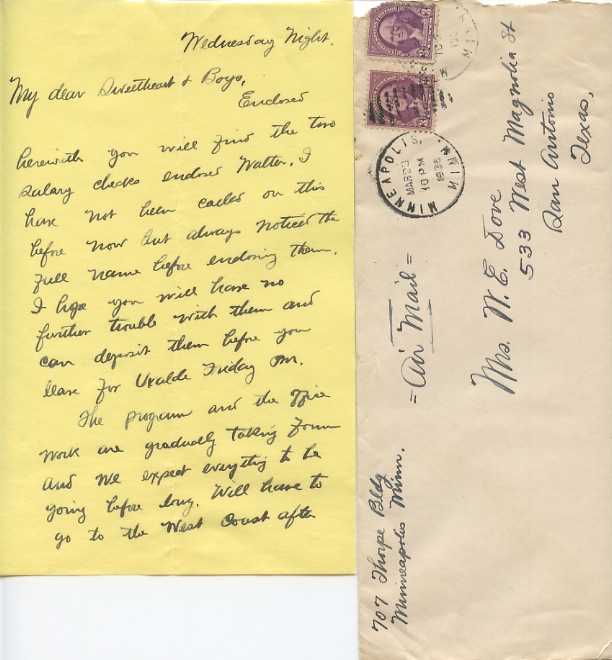 Wednesday Night.
My dear Sweetheart & Boys,
Enclosed
herewith you will find the two
salary checks endorsed Walter. I
have not been called on this
before now but always noticed the
full name before endorsing them.
I hope you will have no
further trouble with them and
can deposit them before you
leave for Uvalde Friday PM.
The program and the office
work are gradually taking form
and we expect everything to be
going before long. Will have to
go to the West Coast after
3 3
3 3
MINNEAPOLIS MINN
MAR 23
10 PM
= Air Mail =
Mrs. W. E. Dove
533 West Magnolia St
San Antonio
Texas,
707 Thorpe Bldg
Minneapolis Minn.